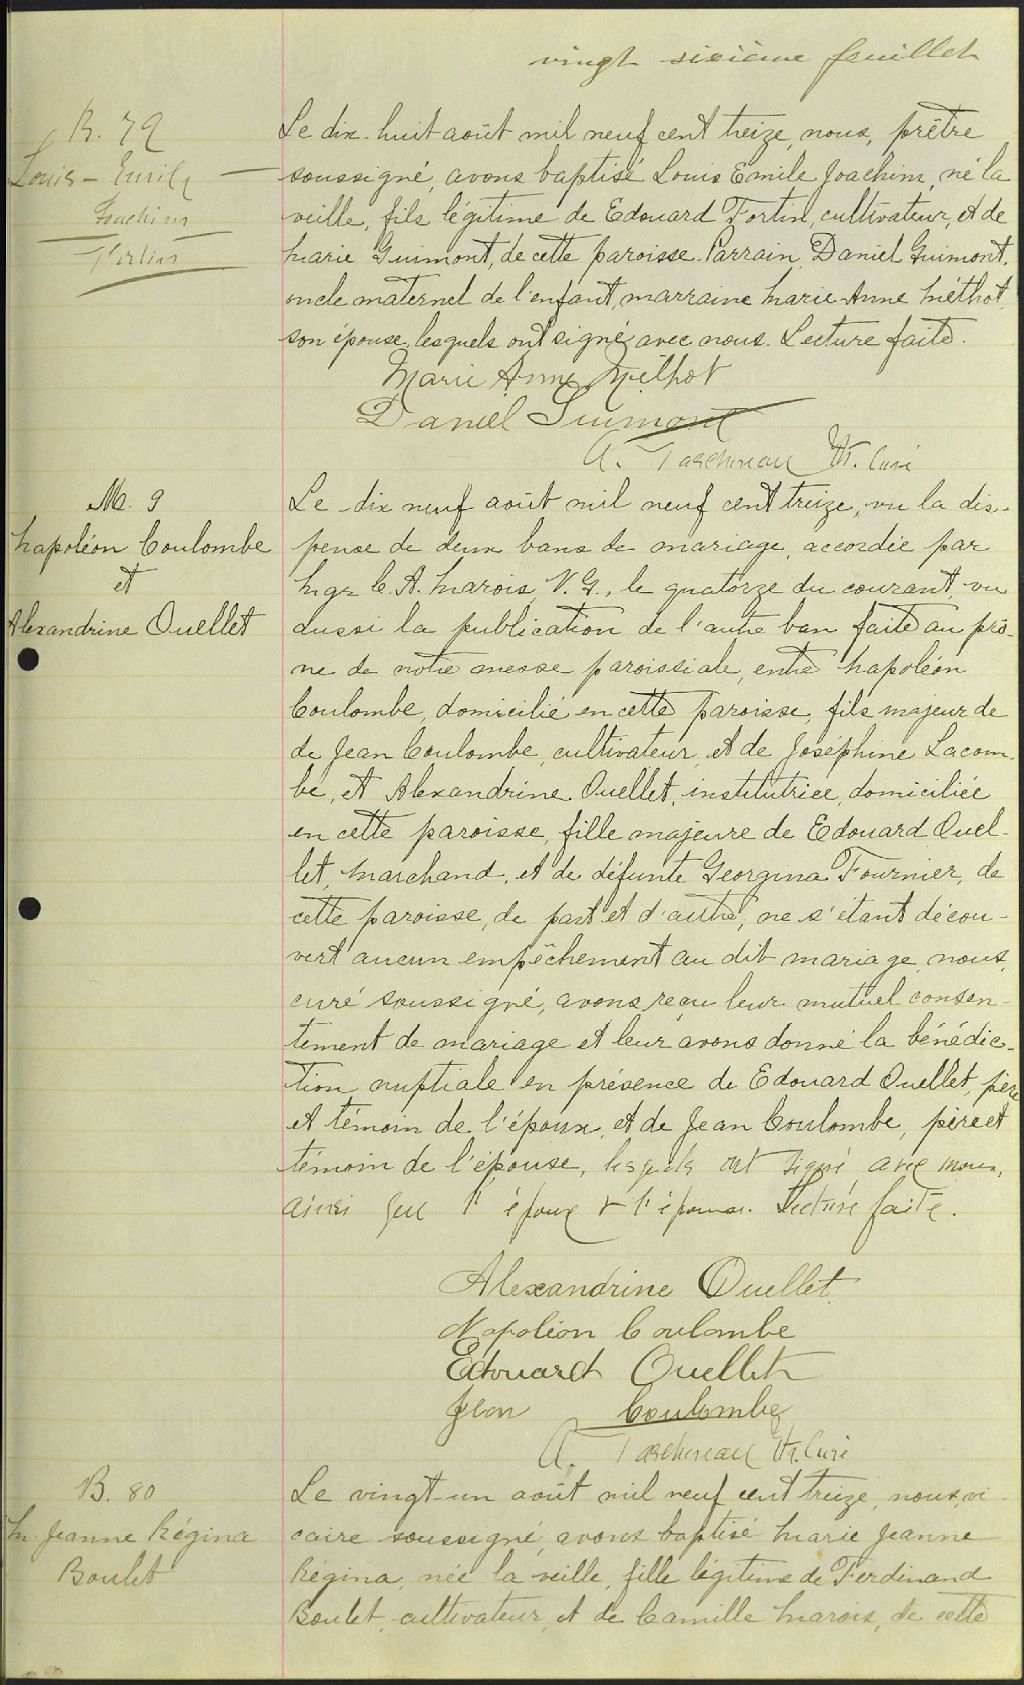 vingt sixième feuillet
B. 79
Louis-Emile
Joachim
Fortin
Le dix-huit août mil neuf cent treize, nous, prêtre
soussigné, avons baptisé Louis Emile Joachim, né la
veille, fils légitime de Edouard Fortin, cultivateur, et de
Marie Guimont, de cette paroisse. Parrain, Daniel Guimont,
oncle maternel de l'enfant, marraine Marie-Anne Méthot,
son épouse, lesquels ont signé avec nous. Lecture faite.
Marie Anne Méthot
Daniel Guimont
A. Taschereau Ptr. Curé
M. 9
Napoléon Coulombe
et
Alexandrine Ouellet
Le dix neuf août mil neuf cent treize, vu la dis-
pense de deux bans de mariage, accordée par
Mgr C. A. Marois, V. G., le quatorze du courant, vu
aussi la publication de l'autre ban faite au prô-
ne de notre messe paroissiale, entre Napoléon
Coulombe, domicilié en cette paroisse, fils majeur de
de Jean Coulombe, cultivateur, et de Joséphine Lacom-
be, et Alexandrine Ouellet, institutrice, domiciliée
en cette paroisse, fille majeure de Edouard Ouel-
let, marchand, et de défunte Georgina Fournier, de
cette paroisse, de part et d'autre; ne s'étant décou-
vert aucun empêchement au dit mariage, nous,
curé soussigné, avons reçu leur mutuel consen-
tement de mariage et leur avons donné la bénédic-
tion nuptiale en présence de Edouard Ouellet, père
et témoin de l'époux, et de Jean Coulombe, père et
témoin de l'épouse, lesquels ont signé avec nous,
ainsi que l'époux & l'épouse. Lecture faite.
Alexandrine Ouellet
Napoléon Coulombe
Edouard Ouellet
Jean Coulombe
A. Taschereau Ptr. Curé
B. 80
M. Jeanne Régina
Boulet
Le vingt-un août mil neuf cent treize, nous, vi-
caire soussigné, avons baptisé Marie Jeanne
Régina, née la veille, fille légitime de Ferdinand
Boulet, cultivateur, et de Camille Marois, de cette